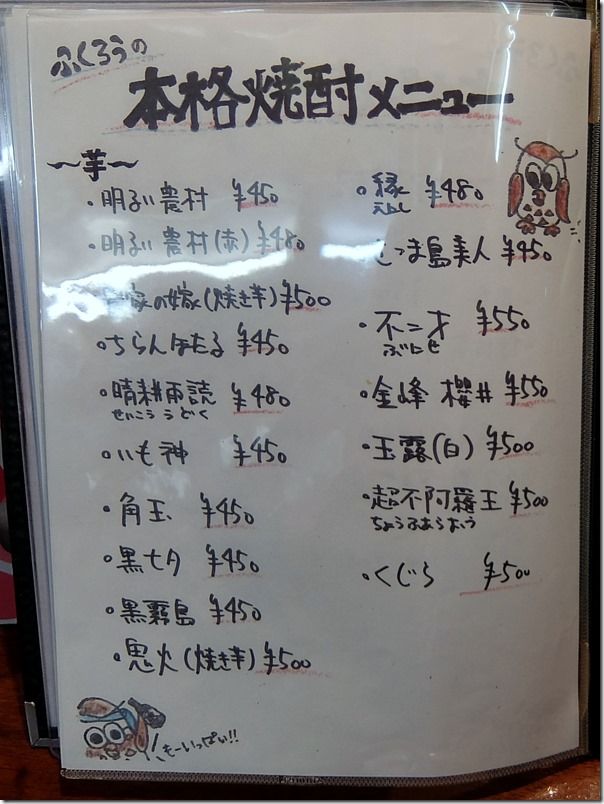 ふくろうの
本格焼酎メニュー
～芋～
・明るい農村 ¥450
・明るい農村(赤) ¥480
家の嫁(焼き芋) ¥500
・ちらんほたる ¥450
・晴耕雨読 ¥480
せいこううどく
・いも神 ¥450
・角玉 ¥450
・黒七夕 ¥450
・黒霧島 ¥450
・鬼火(焼き芋) ¥500
もーいっぱい!!
・縁 ¥480
つま島美人 ¥450
・不二才 ¥550
ぶにせ
・金峰 櫻井 ¥550
・玉露(白) ¥500
・超不阿羅王 ¥500
ちょうふあらおう
・くじら ¥500